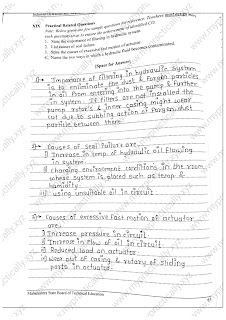 XIX Practical Related Questions
Note: Below given are few sample questions for reference. Teachers must design
such questions so as to ensure the achievement of identified CO.
1. State the importance of filtering in hydraulic system.
2. List causes of seal failure.
3. State the causes of excessive fast motion of actuator.
4. Name the ways in which a hydraulic fluid becomes contaminated.
(Space for Answer)
1)→ Importance of filtering in hydraulic system
is to eniminate the dust & foregin particles
in oil from entering into the pump & further
in system. If filters are not installed the
pump rotor's & inner casing might wear
out due to rubbing action of forgin dust
particle between them.
2)→ Causes of seal failure -
i) Increase in temp. of hydraulic oil flowing
in system.
ii) charging environment conditions in the room
where system is placed such as temp &
humidity.
iii) using unsuitable oil in circuit.
3)→ Causes of excessive fast motion of actuator
are,
i) Increase pressure in circuit
ii) Increase in flow of oil in circuit
iii) Reduced load on actuator
iv) wear out of casing & rotary of sliding
parts in actuator.
Maharashtra State Board of Technical Education